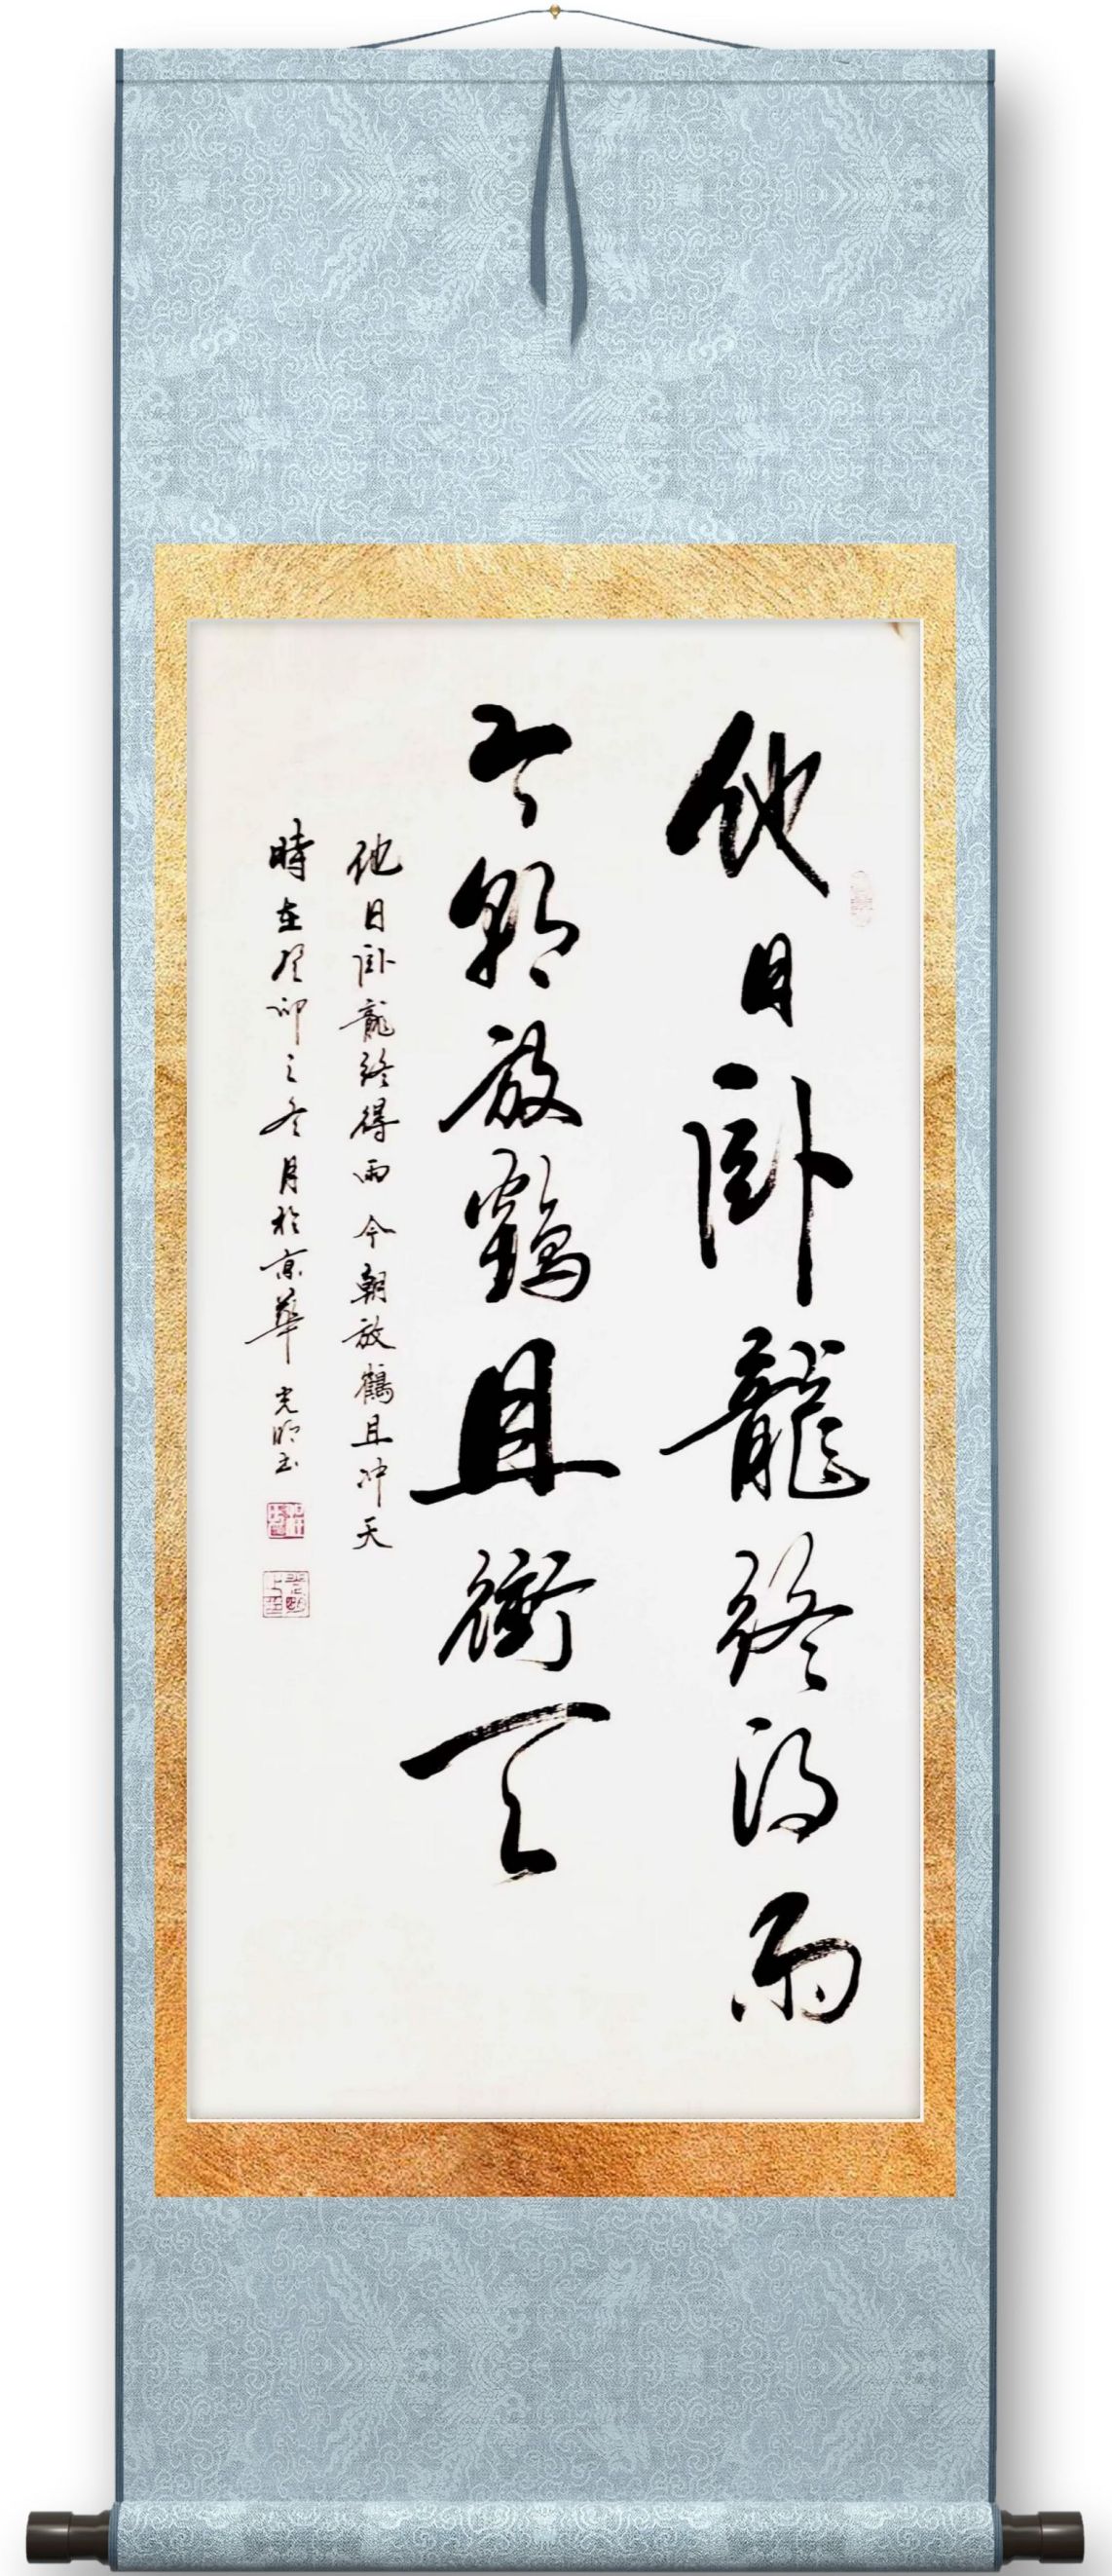 他日卧龍終得雨
今朝放鶴且衝天
他日卧龍終得雨今朝放鶴且冲天
時在癸卯之冬月於京華 光明玉